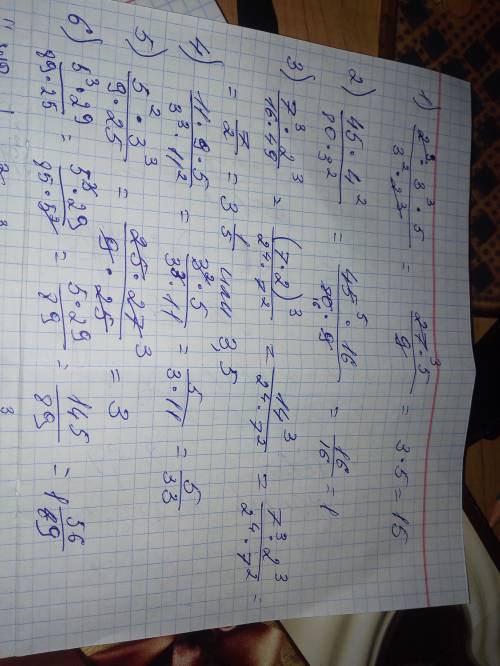 1) 2³·3³·5 / 3²·2³ = 27³·5 / 9 = 3·5 = 15
2) 45·4² / 80·3² = 45⁵·16 / 80₁₆·9 = 16/16 = 1
3) 7³·2³ / 16·49 = (7·2)³ / 2⁴·7² = 14³ / 2⁴·7² = 7³·2³ / 2⁴·7² =
= 7/2 = 3 1/5 или 3,5
4) 11·9·5 / 3³·11² = 3²·5 / 3³·11 = 5 / 3·11 = 5/33
5) 5²·3³ / 9·25 = 25·27³ / 9·25 = 3
6) 5³·29 / 89·25 = 5³·29 / 89·5² = 5·29 / 89 = 145/89 = 1 56/89